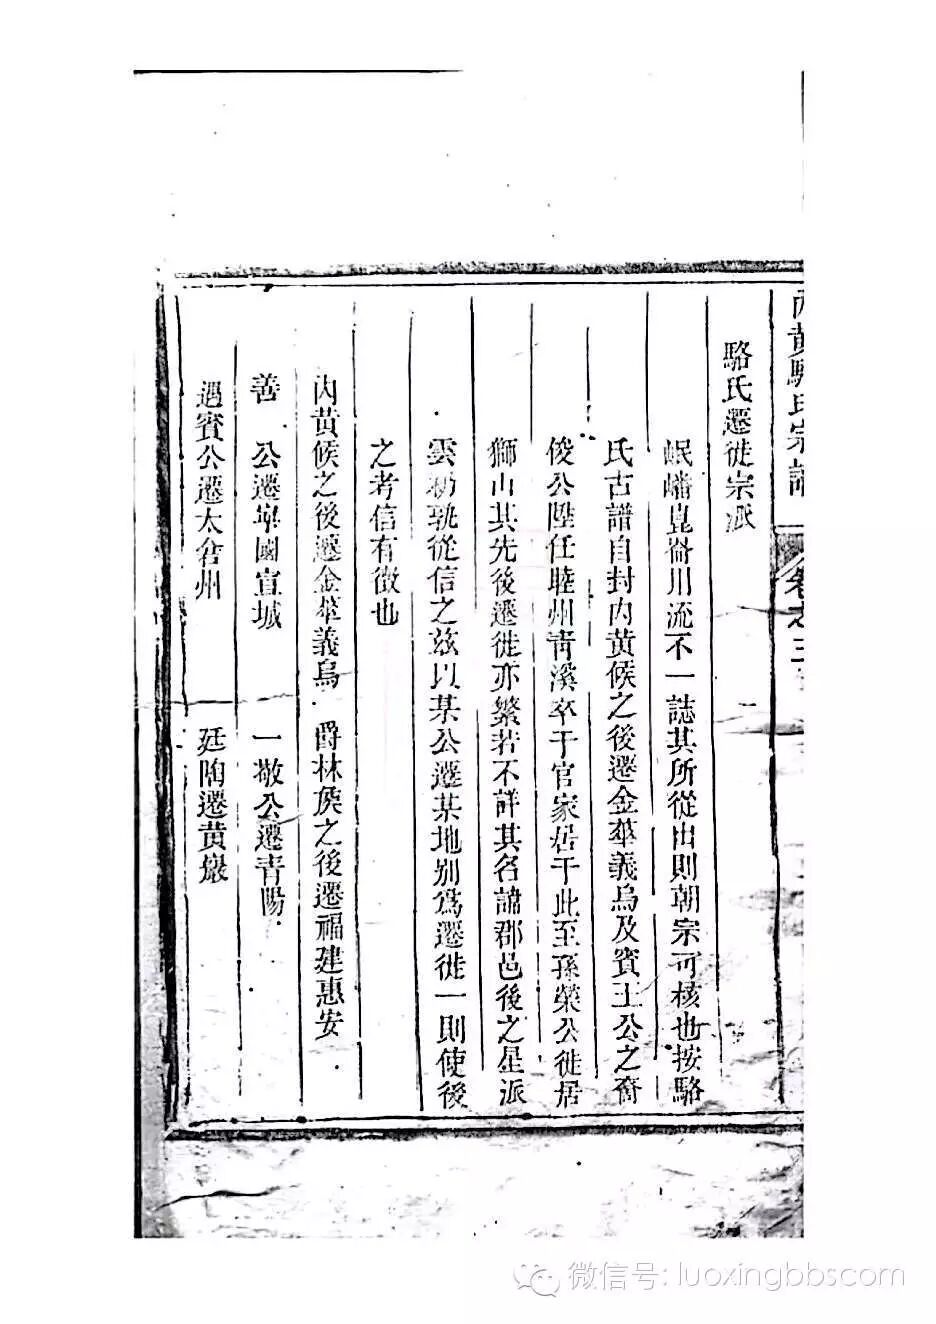 內黄駱氏宗譜 卷之三
駱氏遷徙宗派
岷嶓崑崙川流不一誌其所從出則朝宗可核也按駱
氏古譜自封内黄候之後遷金華義烏及賓王公之裔
俊公陞任睦州青溪卒于官家居于此至孫榮公徙居
獅山其先後遷徙亦繁若不詳其名諱郡邑後之星派
雲礽孰從信之兹以某公遷某地别爲遷徙一則使後
之考信有徴也
内黄候之後遷金華義烏 爵林侯之後遷福建惠安
善 公遷寧國宣城 一敬公遷青陽
遇賓公遷太倉州 廷陶遷黄巖
微信号: luoxingbbscom